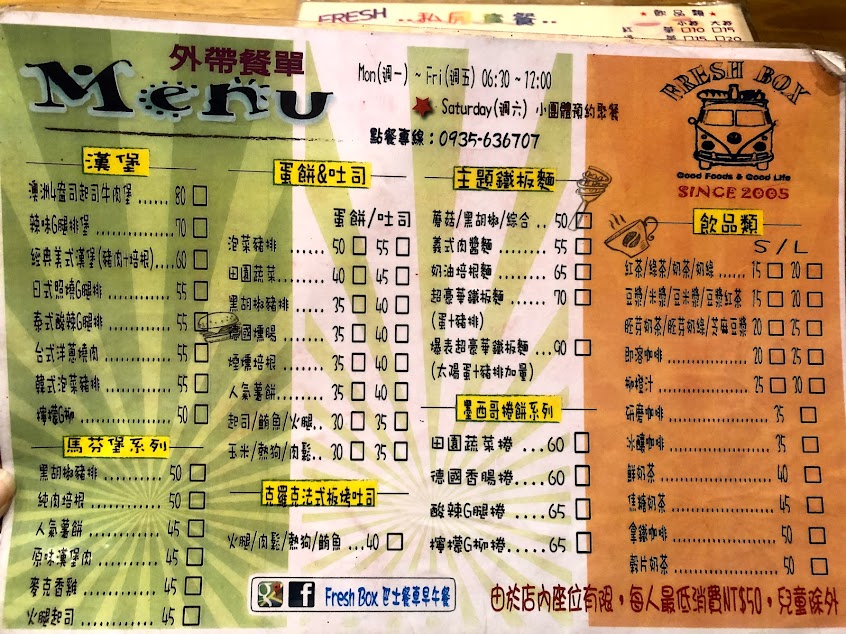 FRESH 私房套餐
飲品類
小杯 大杯
10 15
15 20
外帶餐單
Menu
Mon(週一) ~ Fri(週五) 06:30 ~ 12:00
Saturday(週六) 小團體預約聚餐
點餐專線:0935-636707
FRESH BOX
Good Foods & Good Life
SINCE 2005
漢堡
澳洲4盎司起司牛肉堡......80
辣味G腿排堡......70
經典美式漢堡(豬肉+培根)....60
日式照燒G腿排......55
泰式酸辣G腿排......55
台式洋蔥燒肉......55
韓式泡菜豬排......55
檸檬G柳......50
馬芬堡系列
黑胡椒豬排......50
純肉培根......50
人氣薯餅......45
原味漢堡肉......45
麥克香雞......45
火腿起司......45
蛋餅&吐司
蛋餅/吐司
泡菜豬排......50 55
田園蔬菜......40 45
黑胡椒豬排.....35 40
德國燻腸......35 40
煙燻培根......35 40
人氣薯餅......35 40
起司/鮪魚/火腿..30 35
玉米/熱狗/肉鬆..30 35
克羅克法式板烤吐司
火腿/肉鬆/熱狗/鮪魚...40
Fresh Box 巴士餐車早午餐
主題鐵板麵
蘑菇/黑胡椒/綜合..50
義式肉醬麵......55
奶油培根麵......65
超豪華鐵板麵......70
(蛋+豬排)
爆表超豪華鐵板麵...90
(太陽蛋+豬排加量)
墨西哥捲餅系列
田園蔬菜捲...60
德國香腸捲....60
酸辣G腿捲....65
檸檬G柳捲.....65
飲品類
S / L
紅茶/綠茶/奶茶/奶綠......15 20
豆漿/米漿/豆米漿/豆漿紅茶 15 20
胚芽奶茶/胚芽奶綠/芝麻豆漿 20 25
即溶咖啡......20 25
柳橙汁......25 30
研磨咖啡......35
冰釀咖啡......35
鮮奶茶......40
焦糖奶茶......45
拿鐵咖啡......50
穀片奶茶......50
由於店內座位有限,每人最低消費NT$50,兒童除外